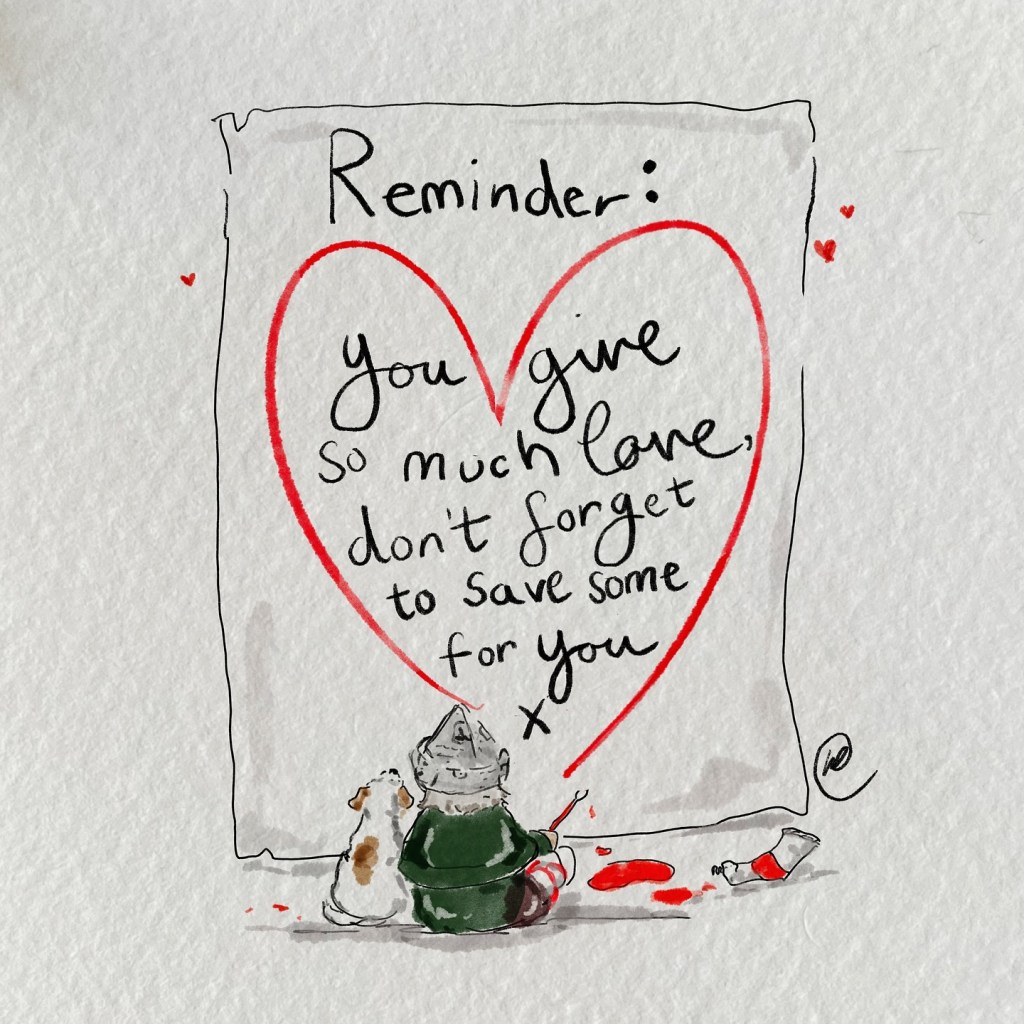 Reminder:
you give
so much love,
don't forget
to save some
for you
x